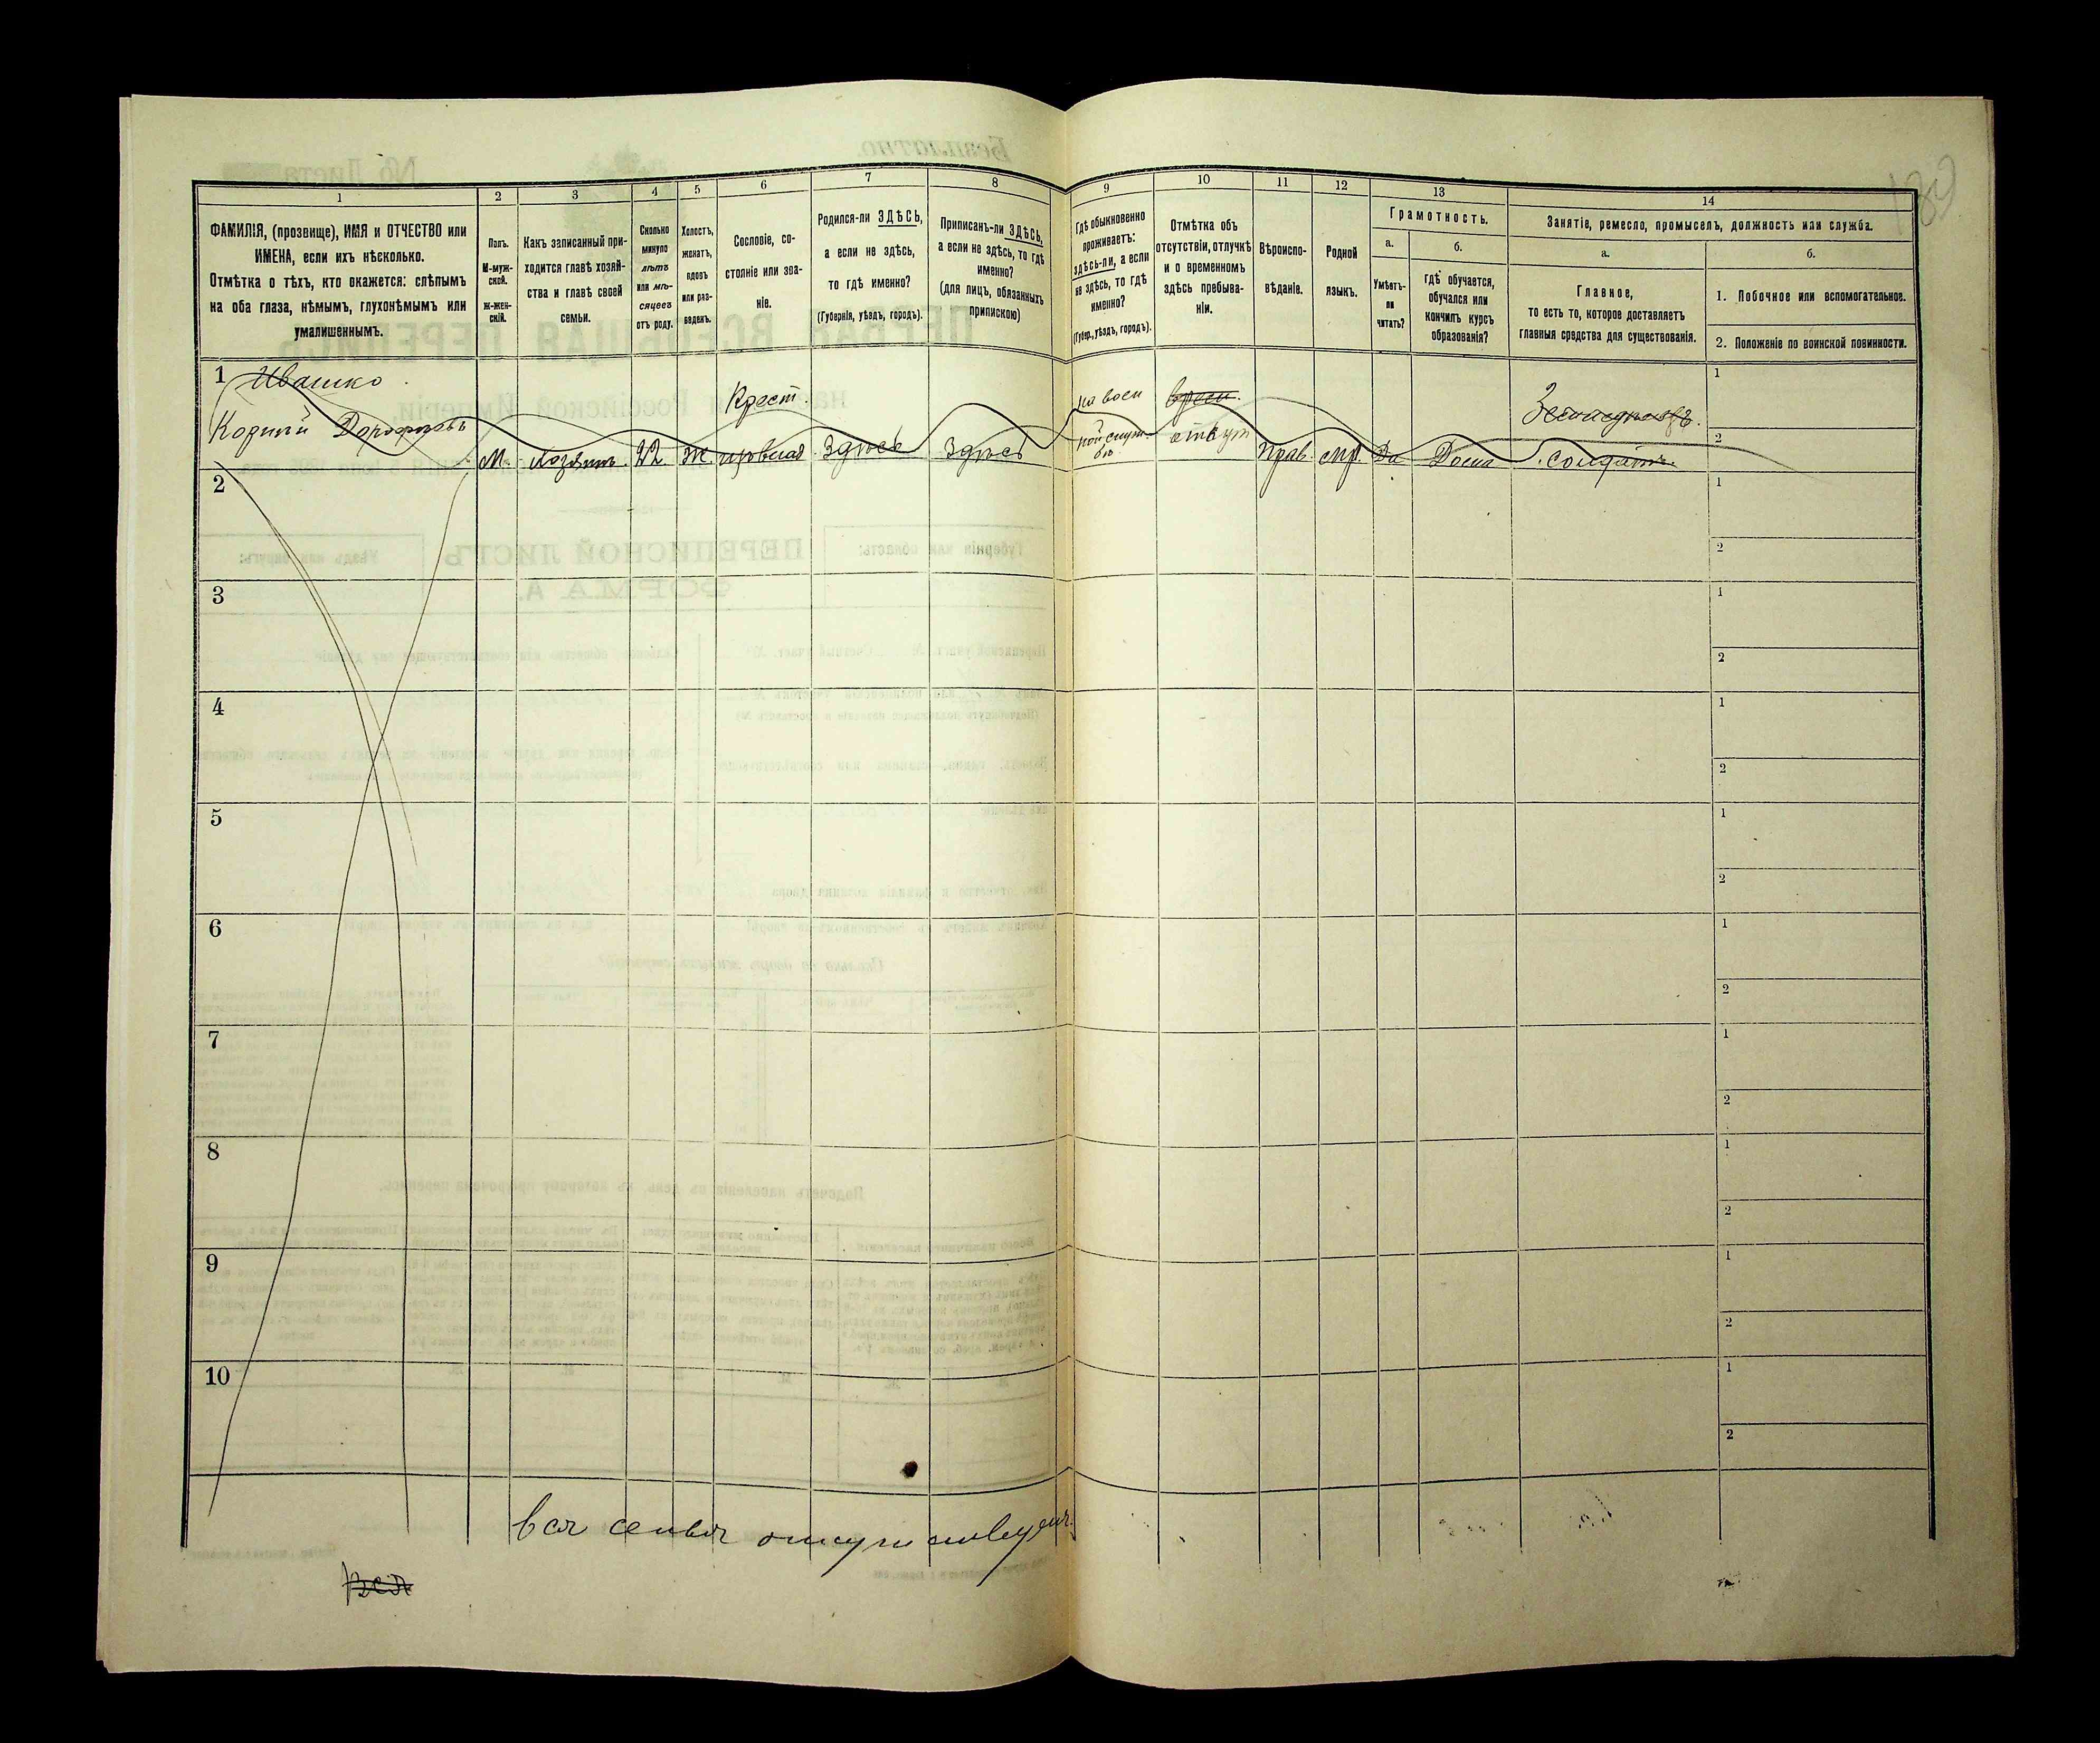 1
2
3
4
5
6
7
8
9
10
11
12
13
14
ФАМИЛІЯ, (прозвище), ИМЯ и ОТЧЕСТВО или
ИМЕНА, если ихъ нѣсколько.
Отмѣтка о тѣхъ, кто окажется: слѣпымъ
на оба глаза, нѣмымъ, глухонѣмымъ или
умалишеннымъ.
Полъ.
М-муж-
ской.
ж-жен-
скій.
Какъ записанный при-
ходится главѣ хозяй-
ства и главѣ своей
семьи.
Сколько
минуло
лѣтъ
или мѣ-
сяцевъ
отъ роду.
Холостъ,
женатъ,
вдовъ
или раз-
веденъ.
Сословіе, со-
стояніе или зва-
ніе.
Родился-ли ЗДѢСЬ,
а если не здѣсь,
то гдѣ именно?
(Губернія, уѣздъ, городъ).
Приписанъ-ли ЗДѢСЬ,
а если не здѣсь, то гдѣ
именно?
(для лицъ, обязанныхъ
припискою)
Гдѣ обыкновенно
проживаетъ:
здѣсь-ли, а если
не здѣсь, то гдѣ
именно?
(Губер., уѣздъ, городъ).
Отмѣтка объ
отсутствіи, отлучкѣ
и о временномъ
здѣсь пребыва-
ніи.
Вѣроиспо-
вѣданіе.
Родной
языкъ.
Грамотность.
а.
Умѣетъ-
ли
читать?
б.
гдѣ обучается,
обучался или
кончилъ курсъ
образованія?
Занятіе, ремесло, промыселъ, должность или служба.
а.
Главное,
то есть то, которое доставляетъ
главныя средства для существованія.
б.
1. Побочное или вспомогательное.
2. Положеніе по воинской повинности.
1 Ивашко
Корній Дорофѣевъ
М.
Хозяинъ.
22
Ж.
Крест.
Здѣсь
Здѣсь
на воен
ной служ
бѣ
отсут
Прав.
Да
Дома
солдатъ.
1
2
2
1
2
3
1
2
4
1
2
5
1
2
6
1
2
7
1
2
8
1
2
9
1
2
10
1
2
вся семья отсутствуетъ.
вся